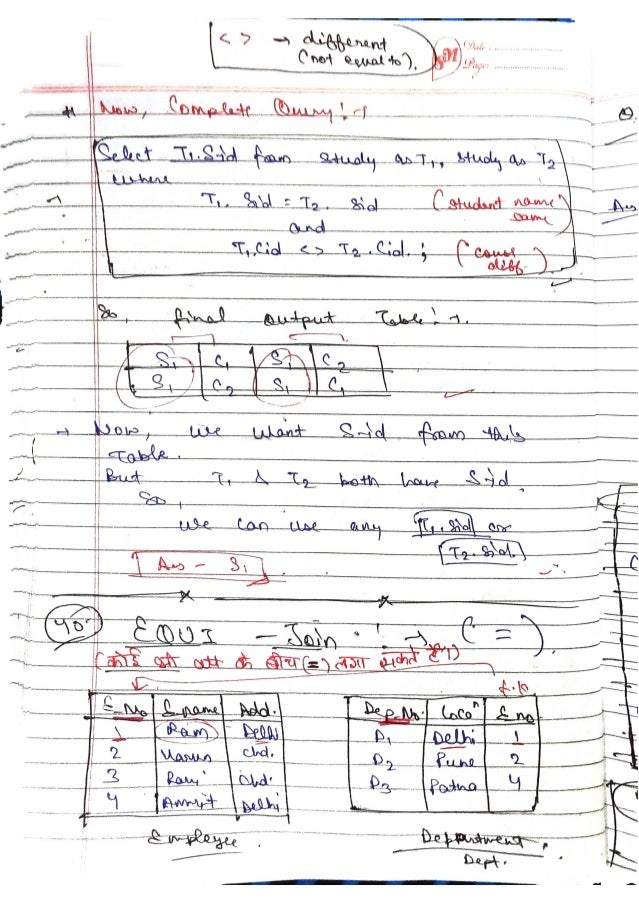 < > → different
(not equal to).
SM Date :
Page :
# Now, Complete Query :→
Select T1.Sid from study as T1, study as T2
where
T1. Sid = T2. sid (student name same)
and
T1.Cid <> T2.Cid. ; (course diff.)
So, final output Table :→.
S1 C1 S1 C2
S1 C2 S1 C1
→ Now, we want S-id from this
Table.
But T1 & T2 both have S-id.
So,
we can use any T1.Sid or
T2.Sid.
Ans - S1
40. EQUI - Join :→ ( = ).
(कोई भी att के बीच (=) लगा सकते हैं।)
f.k
E_No Ename Add.
1 Ram Delhi
2 Varun chd.
3 Ravi Chd.
4 Amrit Delhi
Employee
Dep_No. Locon Eno
D1 Delhi 1
D2 Pune 2
D3 Patna 4
Department
Dept.
Q.
Ans